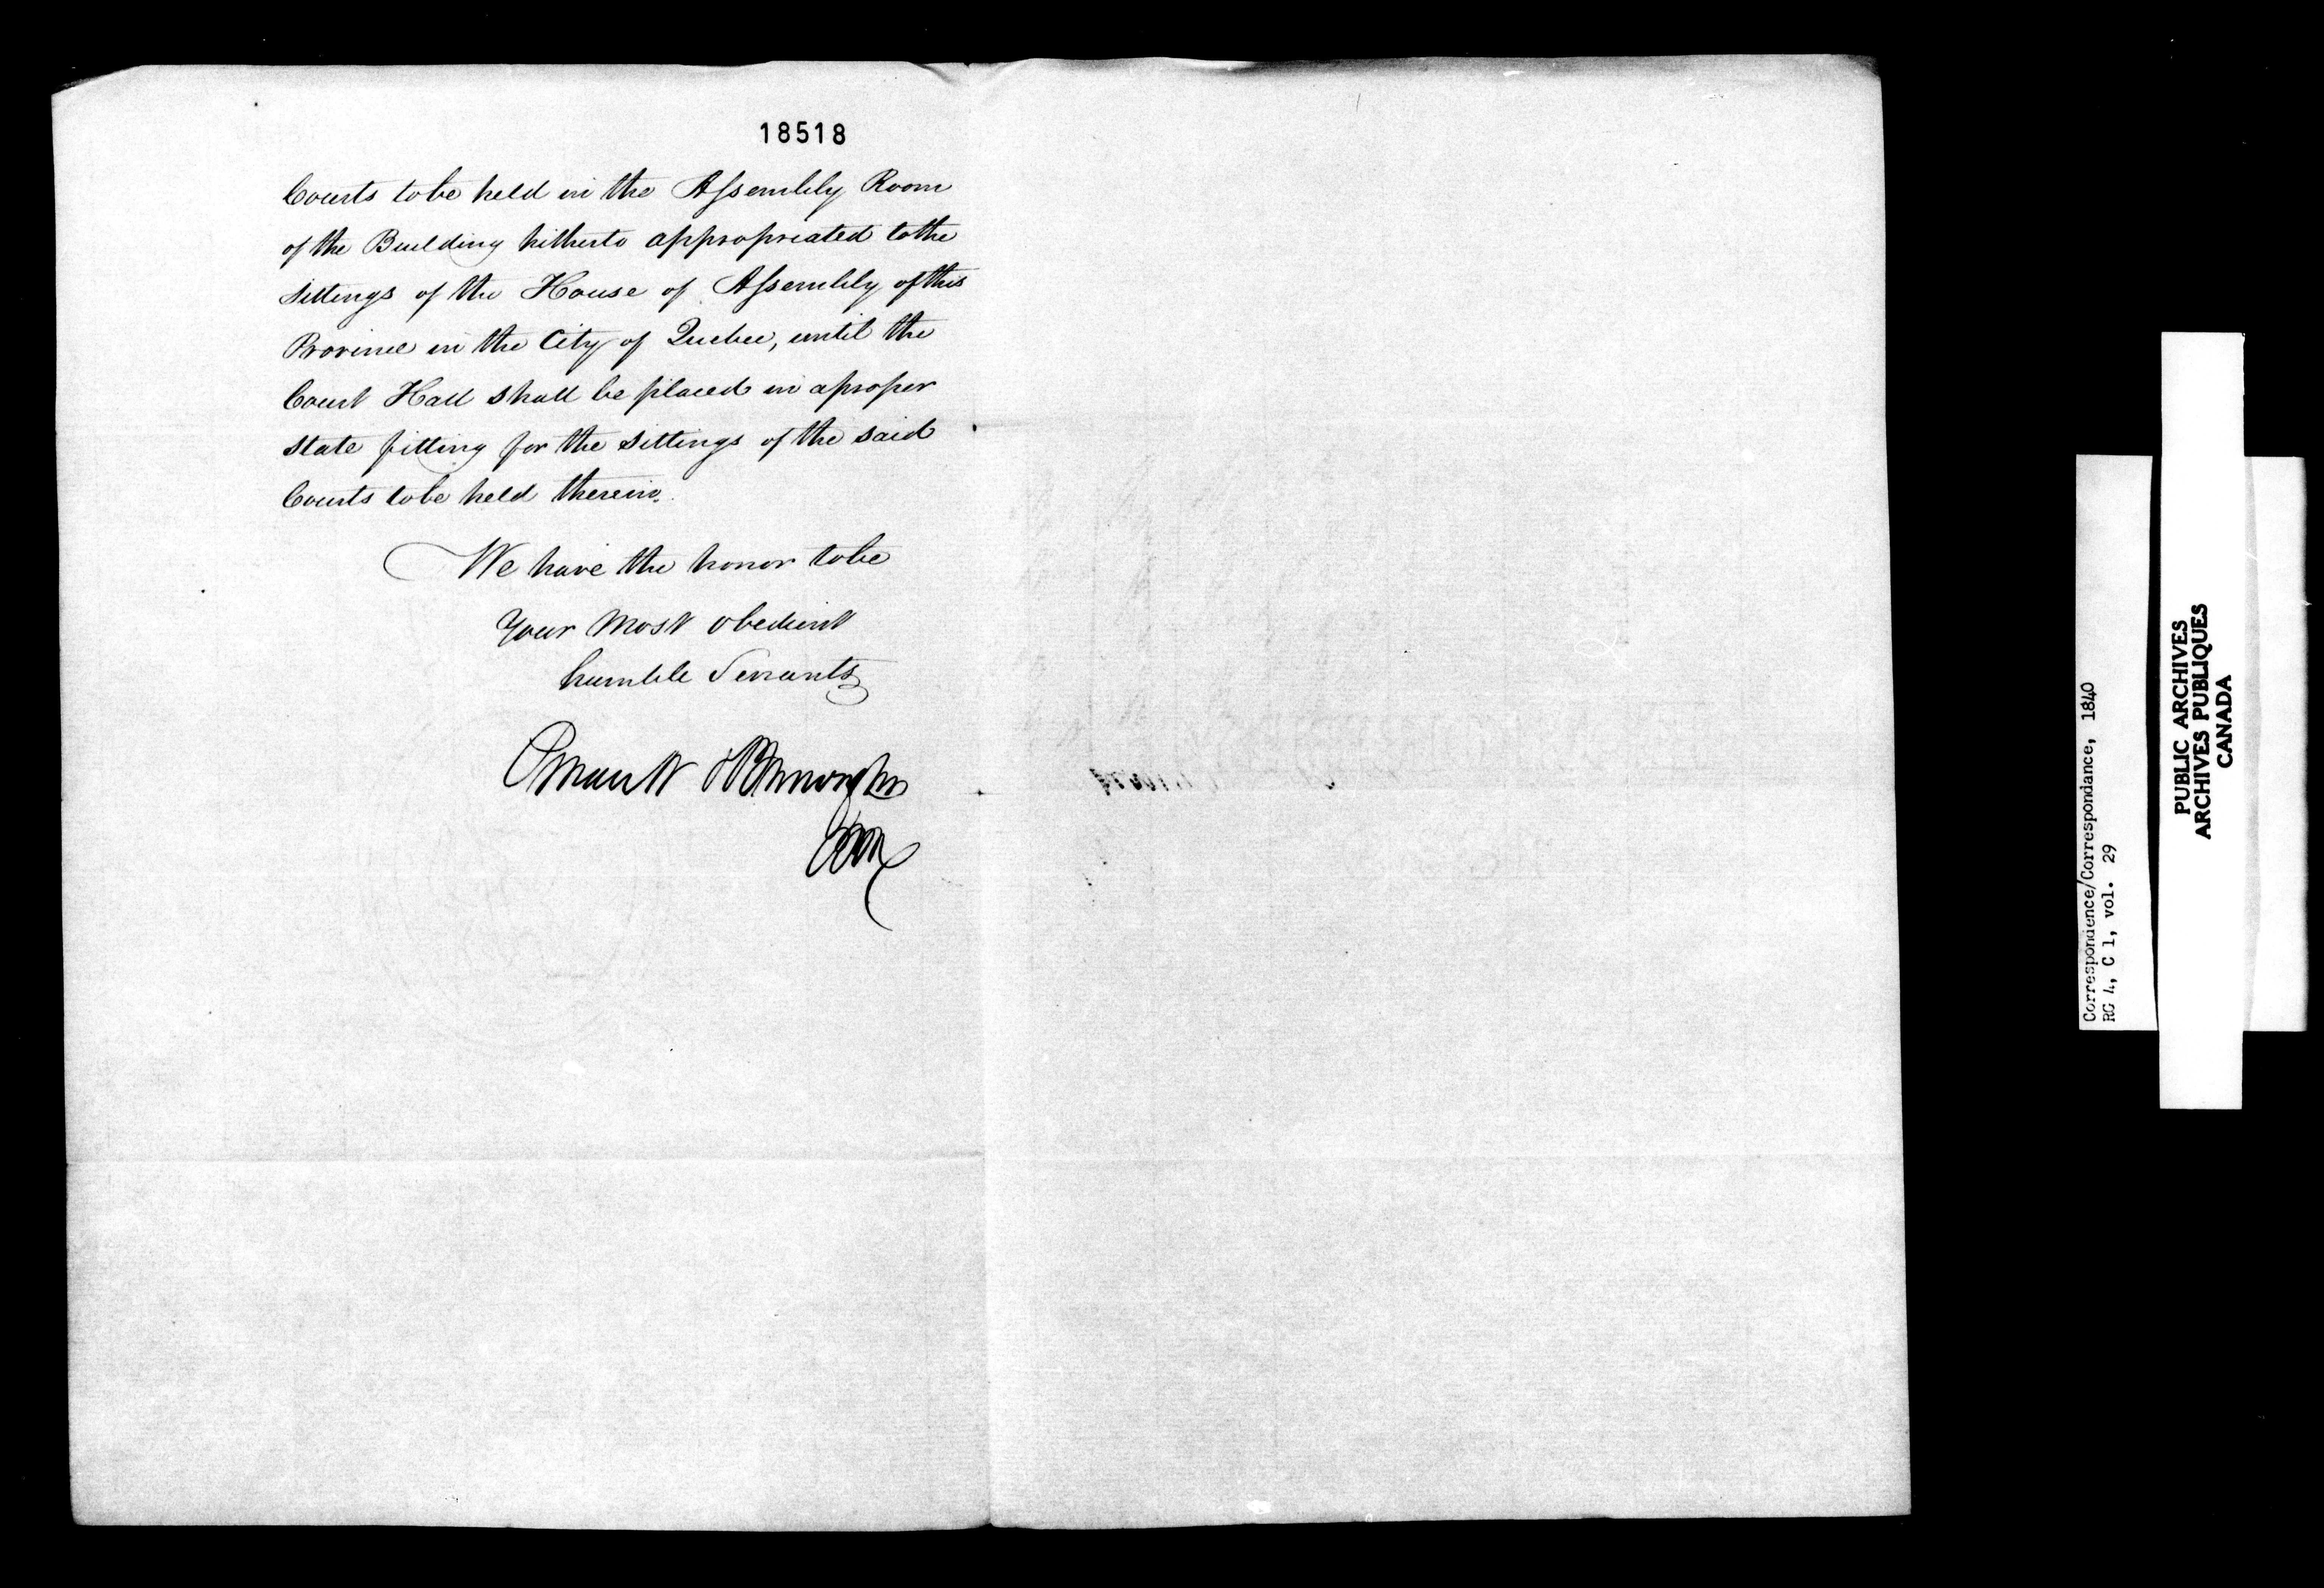 18518
Courts to be held in the Assembly Room
of the Building hitherto appropriated to the
sittings of the House of Assembly of this
Province in the City of Quebec, until the
Court Hall shall be placed in a proper
state fitting for the sittings of the said
Courts to be held therein.
We have the honor to be
Your Most obedient
humble Servants
Correspondence/Correspondance, 1840
RG 4, C 1, vol. 29
PUBLIC ARCHIVES
ARCHIVES PUBLIQUES
CANADA